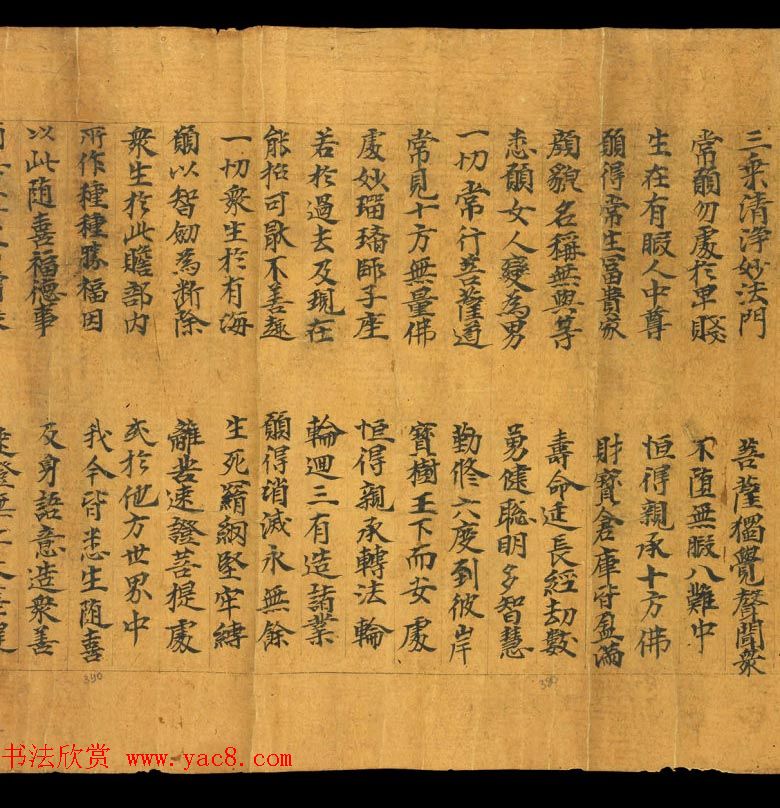 三乘清淨妙法門 菩薩獨覺聲聞衆
常願勿處於卑賤 不墮無暇八難中
生在有暇人中尊 恒得親承十方佛
願得常生富貴家 財寶倉庫皆盈滿
顏貌名稱無與等 壽命延長經劫數
悉願女人變為男 勇健聰明多智慧
一切常行菩薩道 勤修六度到彼岸
常見十方無量佛 寶樹王下而安處
處妙瑠璃師子座 恒得親承轉法輪
若於過去及現在 輪迴三有造諸業
能招可猒不善趣 願得消滅永無餘
一切衆生於有海 生死羂網堅牢縛
願以智劒為斷除 離苦速證菩提處
衆生於此贍部內 或於他方世界中
所作種種勝福因 我今皆悉生隨喜
以此隨喜福德事 及身語意造衆善
390
书法欣赏 www.yac8.com